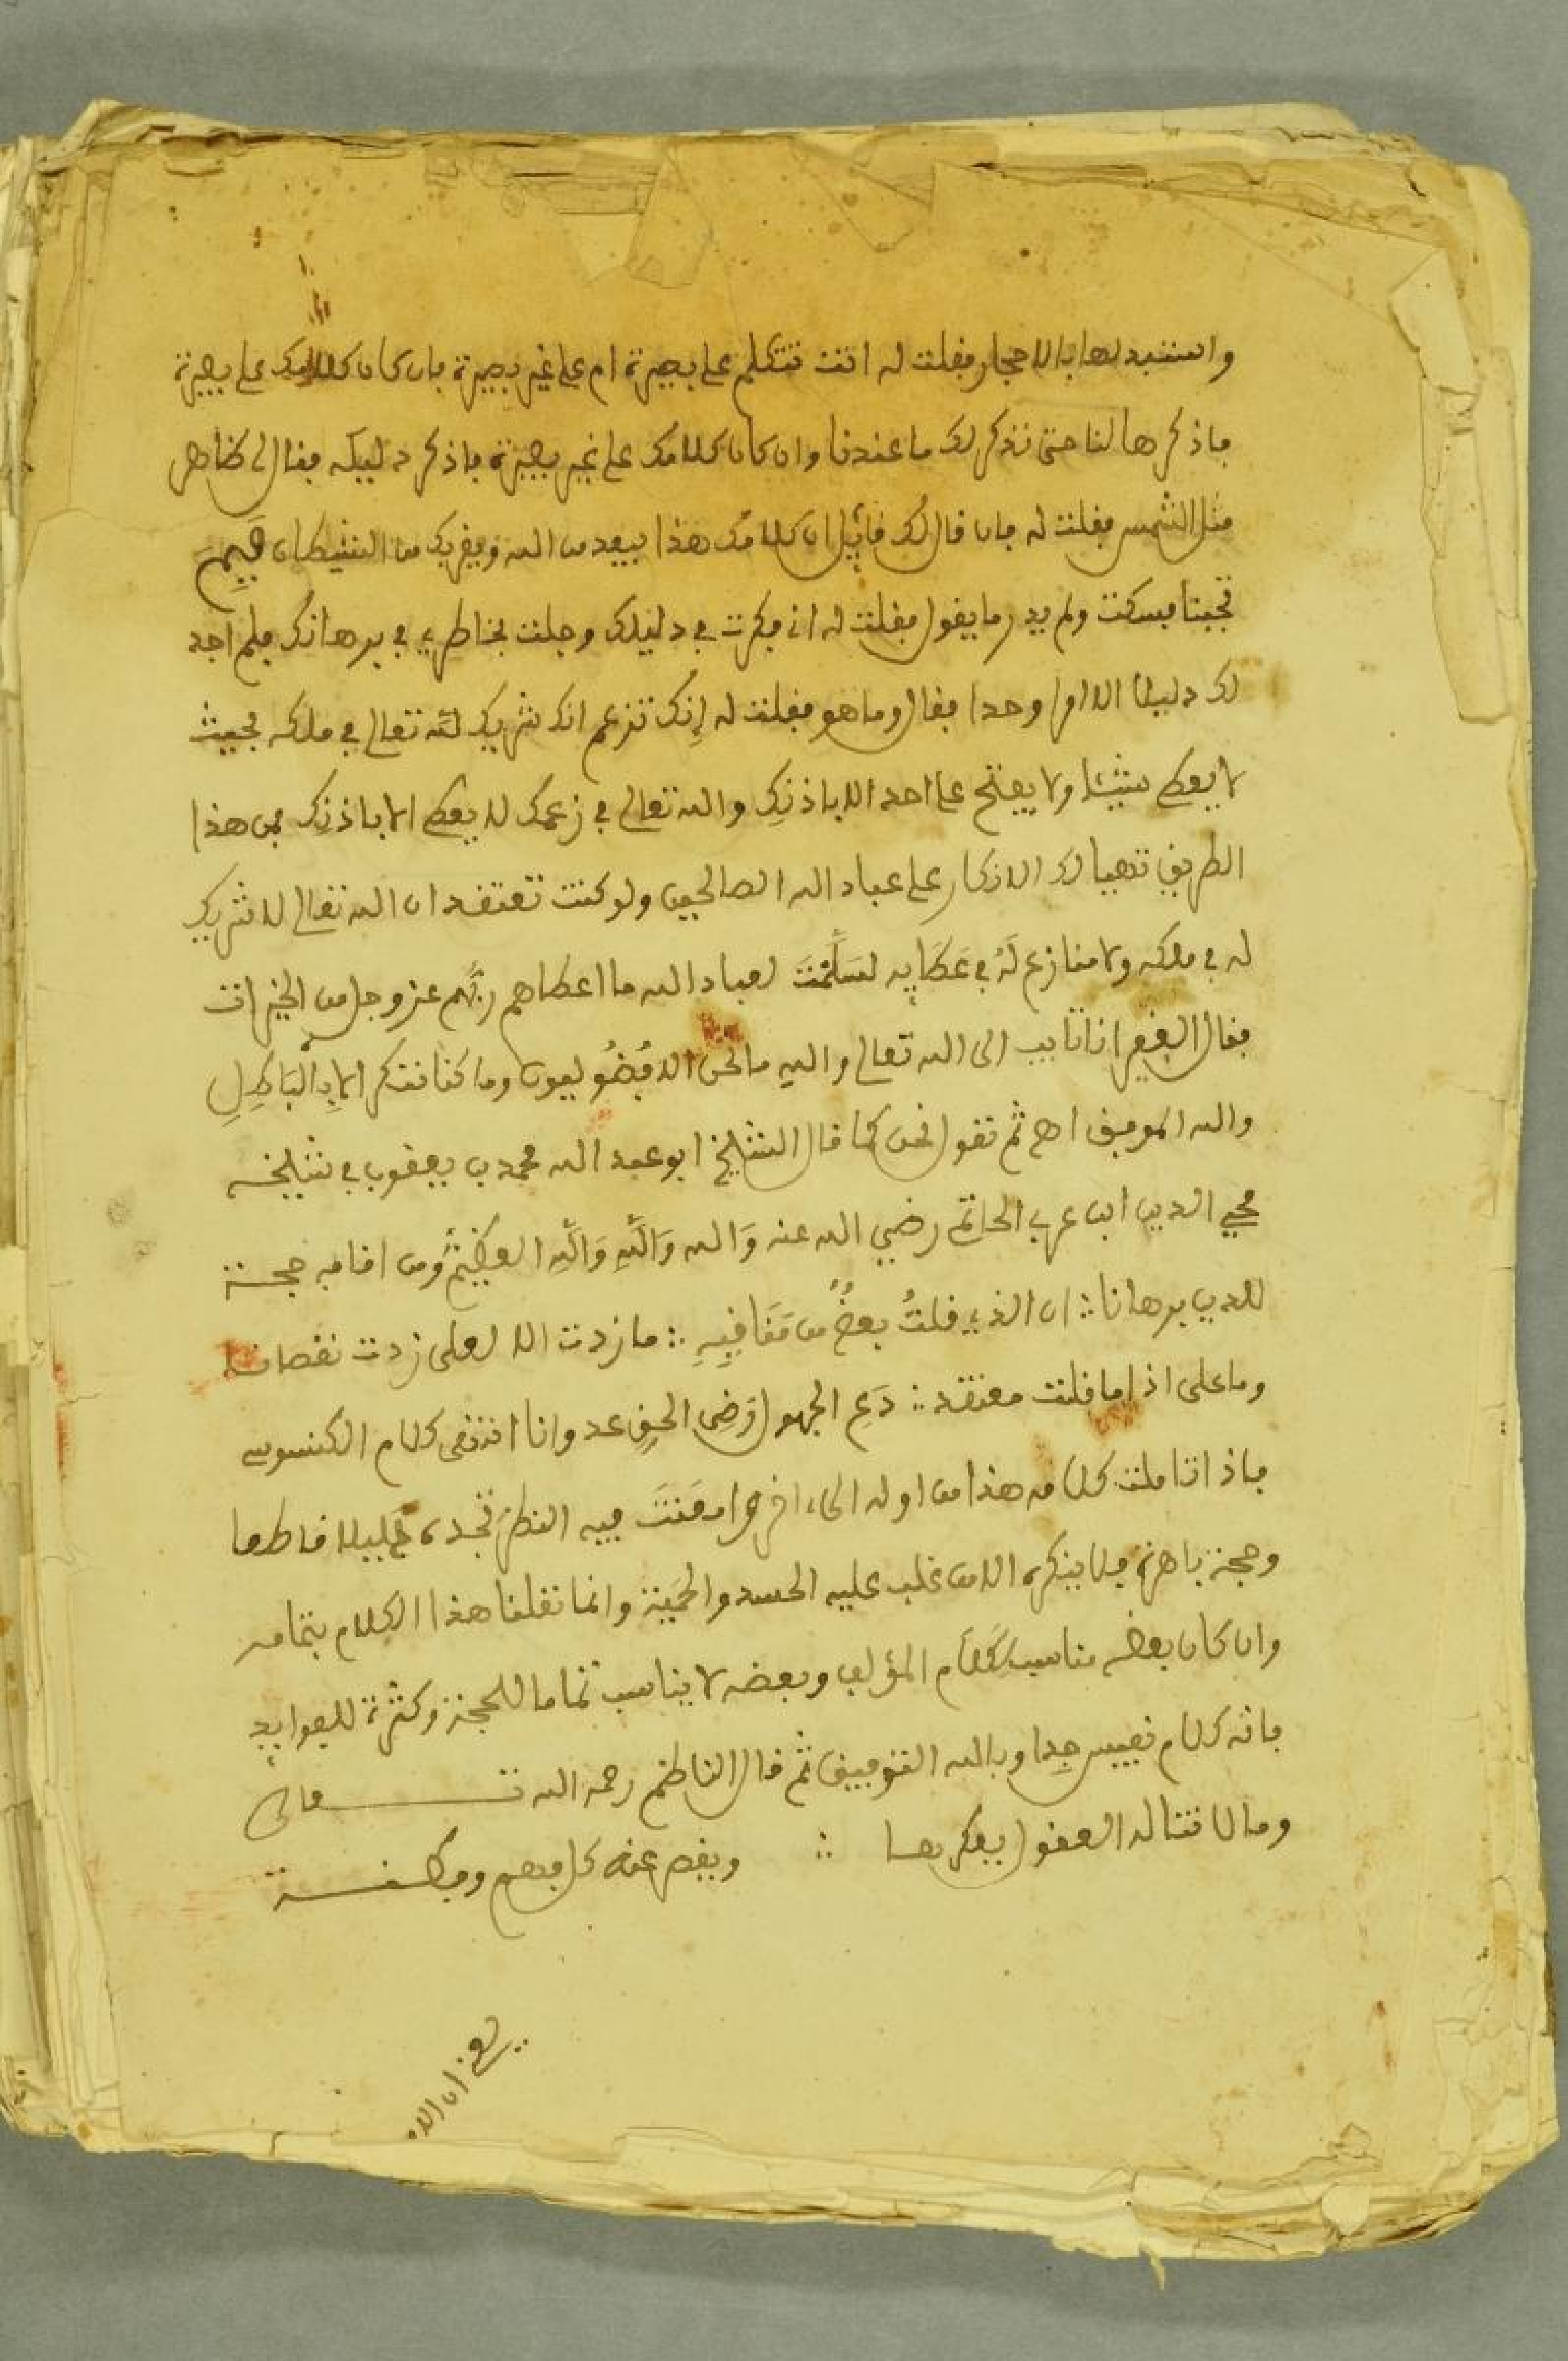 واستبدلها بالاحجار فقلت له اانت تتكلم على بصيرة ام على غير بصيرة فان كان كلامك على بصيرة
فاذكرها لنا حتى نذكر لك ما عندنا وان كان كلامك على غير بصيرة فاذكر دليله فقال لي ظاهر
مثل الشمس فقلت له فان قال لك قائل ان كلامك هذا يبعد من الله ويقربك من الشيطان فبم
تجيبنا فسكت ولم يدر ما يقول فقلت له اني فكرت في دليلك وجلت بخاطري في برهانك فلم اجد
لك دليلا الا امرا وحدا فقال وما هو فقلت له إنك تزعم انك شريك لله تعالى في ملكه بحيث
لا يعطى شيئا ولا يفتح على احد الا باذنك والله تعالى في زعمك لا يعطى الا باذنك فمن هذا
الطريق تهيا لك الانكار على عباد الله الصالحين ولو كنت تعتقد ان الله تعالى لا شريك
له في ملكه ولا منازع لَهُ في عَطَايه لسَلَّمْتَ لعباد الله ما اعطاهم ربُّهم عز وجل من الخيرات
فقال الفقيه انا تايب الى الله تعالى والله ما نحن الا فُضُوليون وما كنا ننكر الا بِالْبَاطِلِ
والله الموفق اهـ ثم نقول نحن كما قال الشيخ ابو عبد الله محمد بن يعقوب في شيخه
محيي الدين ابن عربي الحاتمي رضي الله عنه وَالله وَاللهِ وَاللهِ العظيمِ ومن اقامه حجة
للدين برهانا ∴ ان الذي قلتُ بعضٌ من مَنَاقِبِهِ ∴ ما زدت الا لعلى زدت نقصانا
وما على اذا ما قلت معتقد ∴ دَعِ الجهول يظن الحق عدوانا انتهى كلام الكنسوسي
فاذا تاملت كلامه هذا من اوله الى ءاخره وامعَنتَ فيه النظر تجده دليلا قاطعا
وحجة باهرة فلا ينكره الا من غلب عليه الحسد والحمية وانما نقلنا هذا الكلام بتمامه
وان كان بعضه مناسب لكلام المؤلف وبعضه لا يناسب تماما للحجة وكثرة للفوايد
فانه كلام نفيس جدا وبالله التوفيق ثم قال الناظم رحمه الله تعالى
وما لا تناله العقول بفكرها ∴ ويقصر عنه كل فهم وفطنة
يعني ان الا